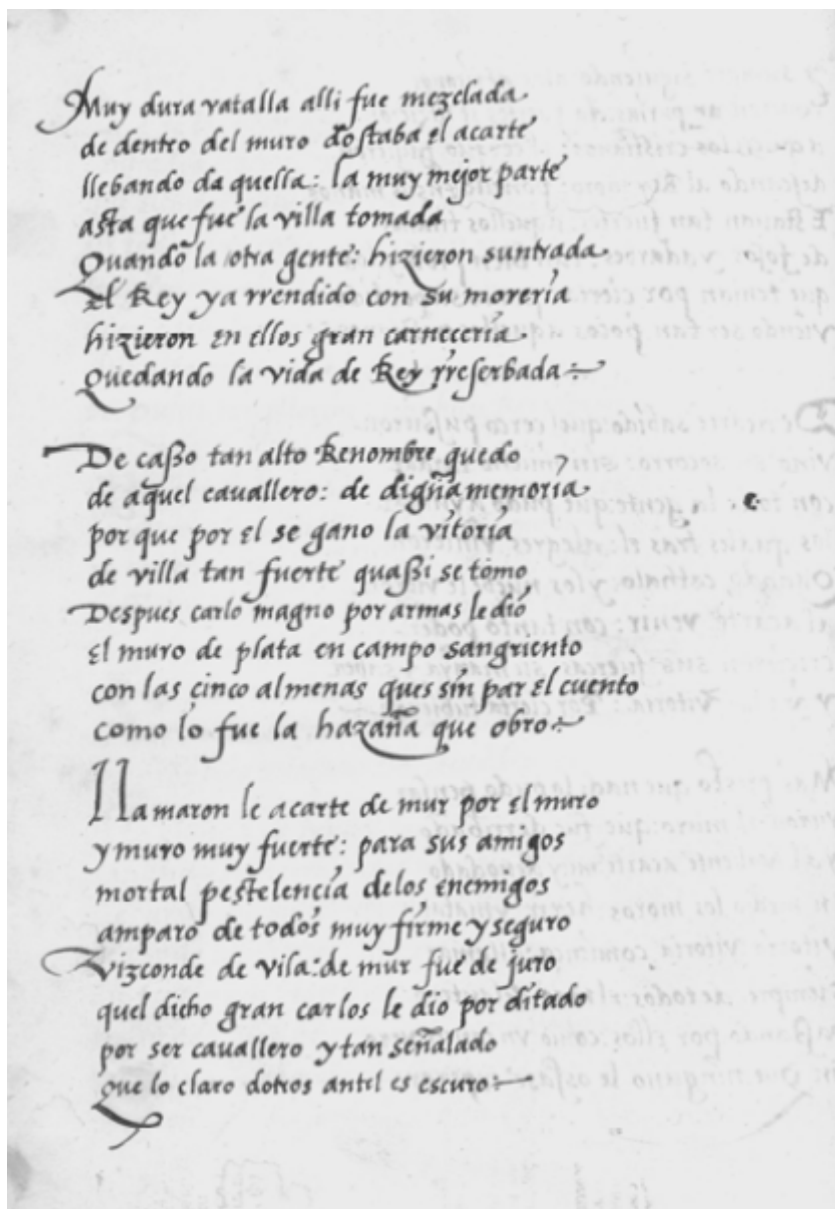 Muy dura vatalla alli fue mezclada
de dentro del muro dostaba el acarte
llebando da quella: la muy mejor parte
asta que fue la villa tomada
Quando la otra gente: hizieron suntrada
El Rey ya rrendido con su moreria
hizieron en ellos gran carneceria
Quedando la vida de Rey rreserbada÷
De casso tan alto Renombre quedo
de aquel cavallero: de digña memoria
por que por el se gano la vitoria
de villa tan fuerte quassi se tomo
Despues carlo magno por armas le dio
El muro de plata en campo sangriento
con las cinco almenas ques sin par El cuento
como lo fue la hazaña que obro÷
Llamaron le acarte de mur por El muro
y muro muy fuerte: para sus amigos
mortal pestelencia delos enemigos
amparo de todos muy firme y seguro
vizconde de vila: de mur fue de juro
quel dicho gran carlos le dio por ditado
por ser cavallero y tan señalado
Que lo claro dotros antel es escuro÷